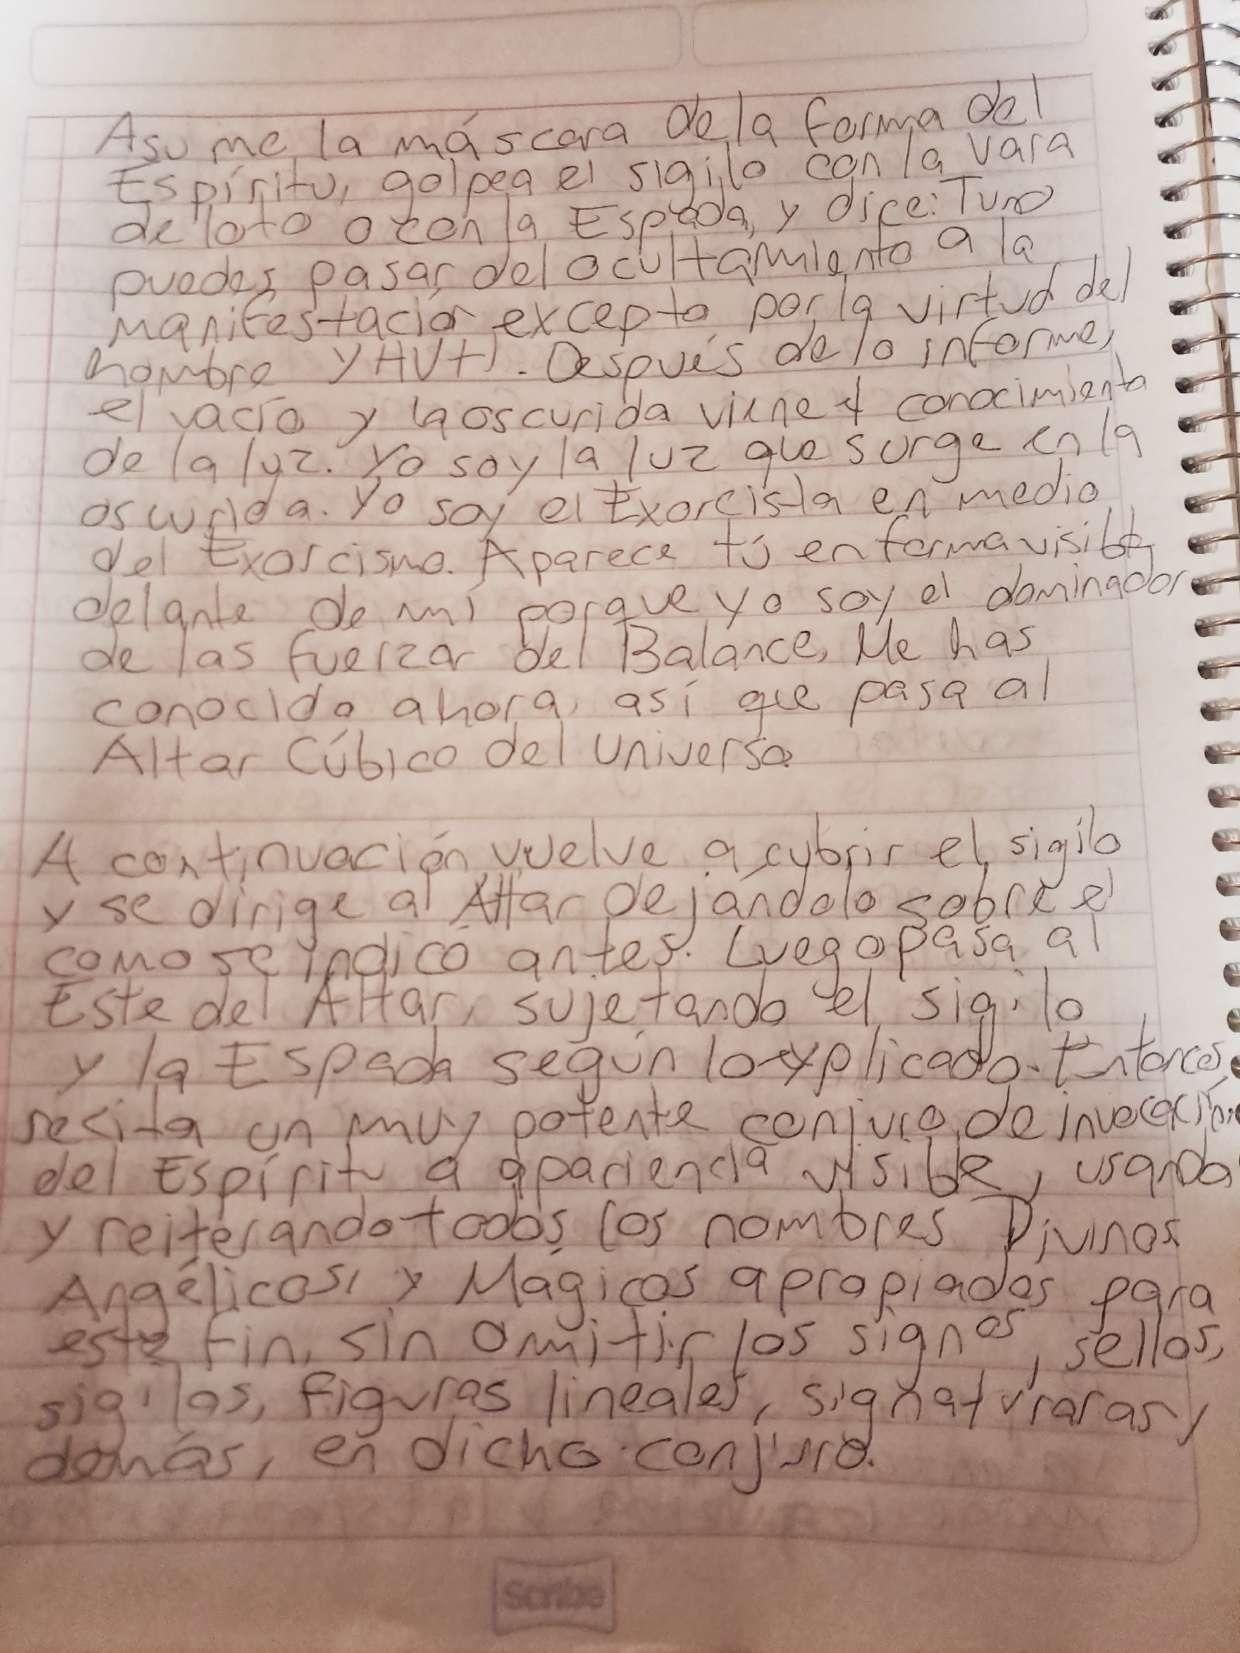 Asume la máscara de la forma del
Espíritu, golpea el sigilo con la vara
de loto o con la Espada, y dice: Tu no
puedes pasar del ocultamiento a la
manifestación excepto por la virtud del
nombre YHVH. Después de lo informe,
el vacío y la oscurida viene el conocimiento
de la luz. Yo soy la luz que surge en la
oscurida. Yo soy el Exorcista en medio
del Exorcismo. Aparece tú en forma visible
delante de mí porque yo soy el dominador
de las fuerzar del Balance, Me has
conocido ahora, así que pasa al
Altar Cúbico del universo.
A continuación vuelve a cubrir el sigilo
y se dirige al Altar dejándolo sobre el
como se indicó antes. Luego pasa al
Este del Altar, sujetando el sigilo
y la Espada según lo explicado. Entonces
recita un muy potente conjuro de invocación
del Espíritu a apariencia visible, usando
y reiterando todos los nombres Divinos
Angélicos, y Mágicos apropiados para
este fin, sin omitir los signos, sellos,
sigilos, figuras lineales, signaturaras y
demás, en dicho conjuro.
Scribe